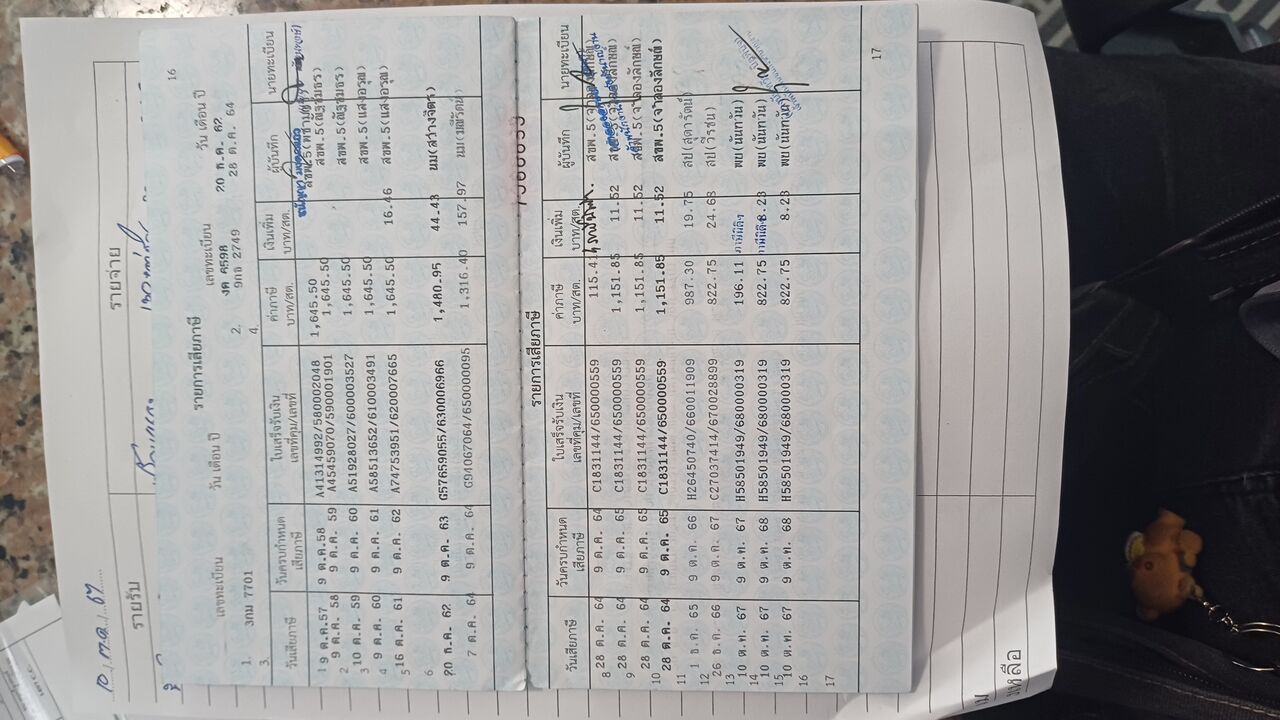 10 ต.ค. 67
รายรับ
รายจ่าย
16
รายการเสียภาษี
เลขทะเบียน วัน เดือน ปี เลขทะเบียน วัน เดือน ปี
1. 3กม 7701 2. งค 6598 20 ธ.ค. 62
3. 4. 9กธ 2749 28 ต.ค. 64
วันเสียภาษี วันครบกำหนดเสียภาษี ใบเสร็จรับเงิน เล่มที่คุม/เลขที่ ค่าภาษี บาท/สต. เงินเพิ่ม บาท/สต. ผู้บันทึก นายทะเบียน
1 9 ต.ค.57 9 ต.ค.58 A41314992/580002048 1,645.50
9 ต.ค. 58 9 ต.ค. 59 A45459070/590001901 1,645.50
2 10 ต.ค. 59 9 ต.ค. 60 A51928027/600003527 1,645.50
3 9 ต.ค. 60 9 ต.ค. 61 A58513652/610003491 1,645.50 สขพ.5(แสงอรุณ)
4 16 ต.ค. 61 9 ต.ค. 62 A74753951/620007665 1,645.50 16.46 สขพ.5(แสงอรุณ)
5
6 20 ธ.ค. 62 9 ต.ค. 63 G57659055/630006966 1,480.95 44.43 นม(สว่างจิตร)
7 7 ต.ค. 64 9 ต.ค. 64 G94067064/6500000095 1,316.40 157.97 นม(มณีรัตน์)
รายการเสียภาษี
วันเสียภาษี วันครบกำหนดเสียภาษี ใบเสร็จรับเงิน เล่มที่คุม/เลขที่ ค่าภาษี บาท/สต. เงินเพิ่ม บาท/สต. ผู้บันทึก นายทะเบียน
8 28 ต.ค. 64 9 ต.ค. 64 C1831144/650000559 115.41
9 28 ต.ค. 64 9 ต.ค. 65 C1831144/650000559 1,151.85 11.52
28 ต.ค. 64 9 ต.ค. 65 C1831144/650000559 1,151.85 11.52
10 28 ต.ค. 64 9 ต.ค. 65 C1831144/650000559 1,151.85 11.52 สขพ.5(จำลองลักษณ์)
11 1 ธ.ค. 65 9 ต.ค. 66 H26450740/660011909 987.30 19.75 สป(สุดารัตน์)
12 26 ธ.ค. 66 9 ต.ค. 67 C27037414/670028899 822.75 24.68 สป(วีรชน)
13 10 ต.ค. 67 9 ต.ค. 67 H58501949/680000319 196.11 พย(นันทวัน)
14 10 ต.ค. 67 9 ต.ค. 68 H58501949/680000319 822.75 8.23 พย(นันทวัน)
15 10 ต.ค. 67 9 ต.ค. 68 H58501949/680000319 822.75 8.23 พย(นันทวัน)
16
17
17